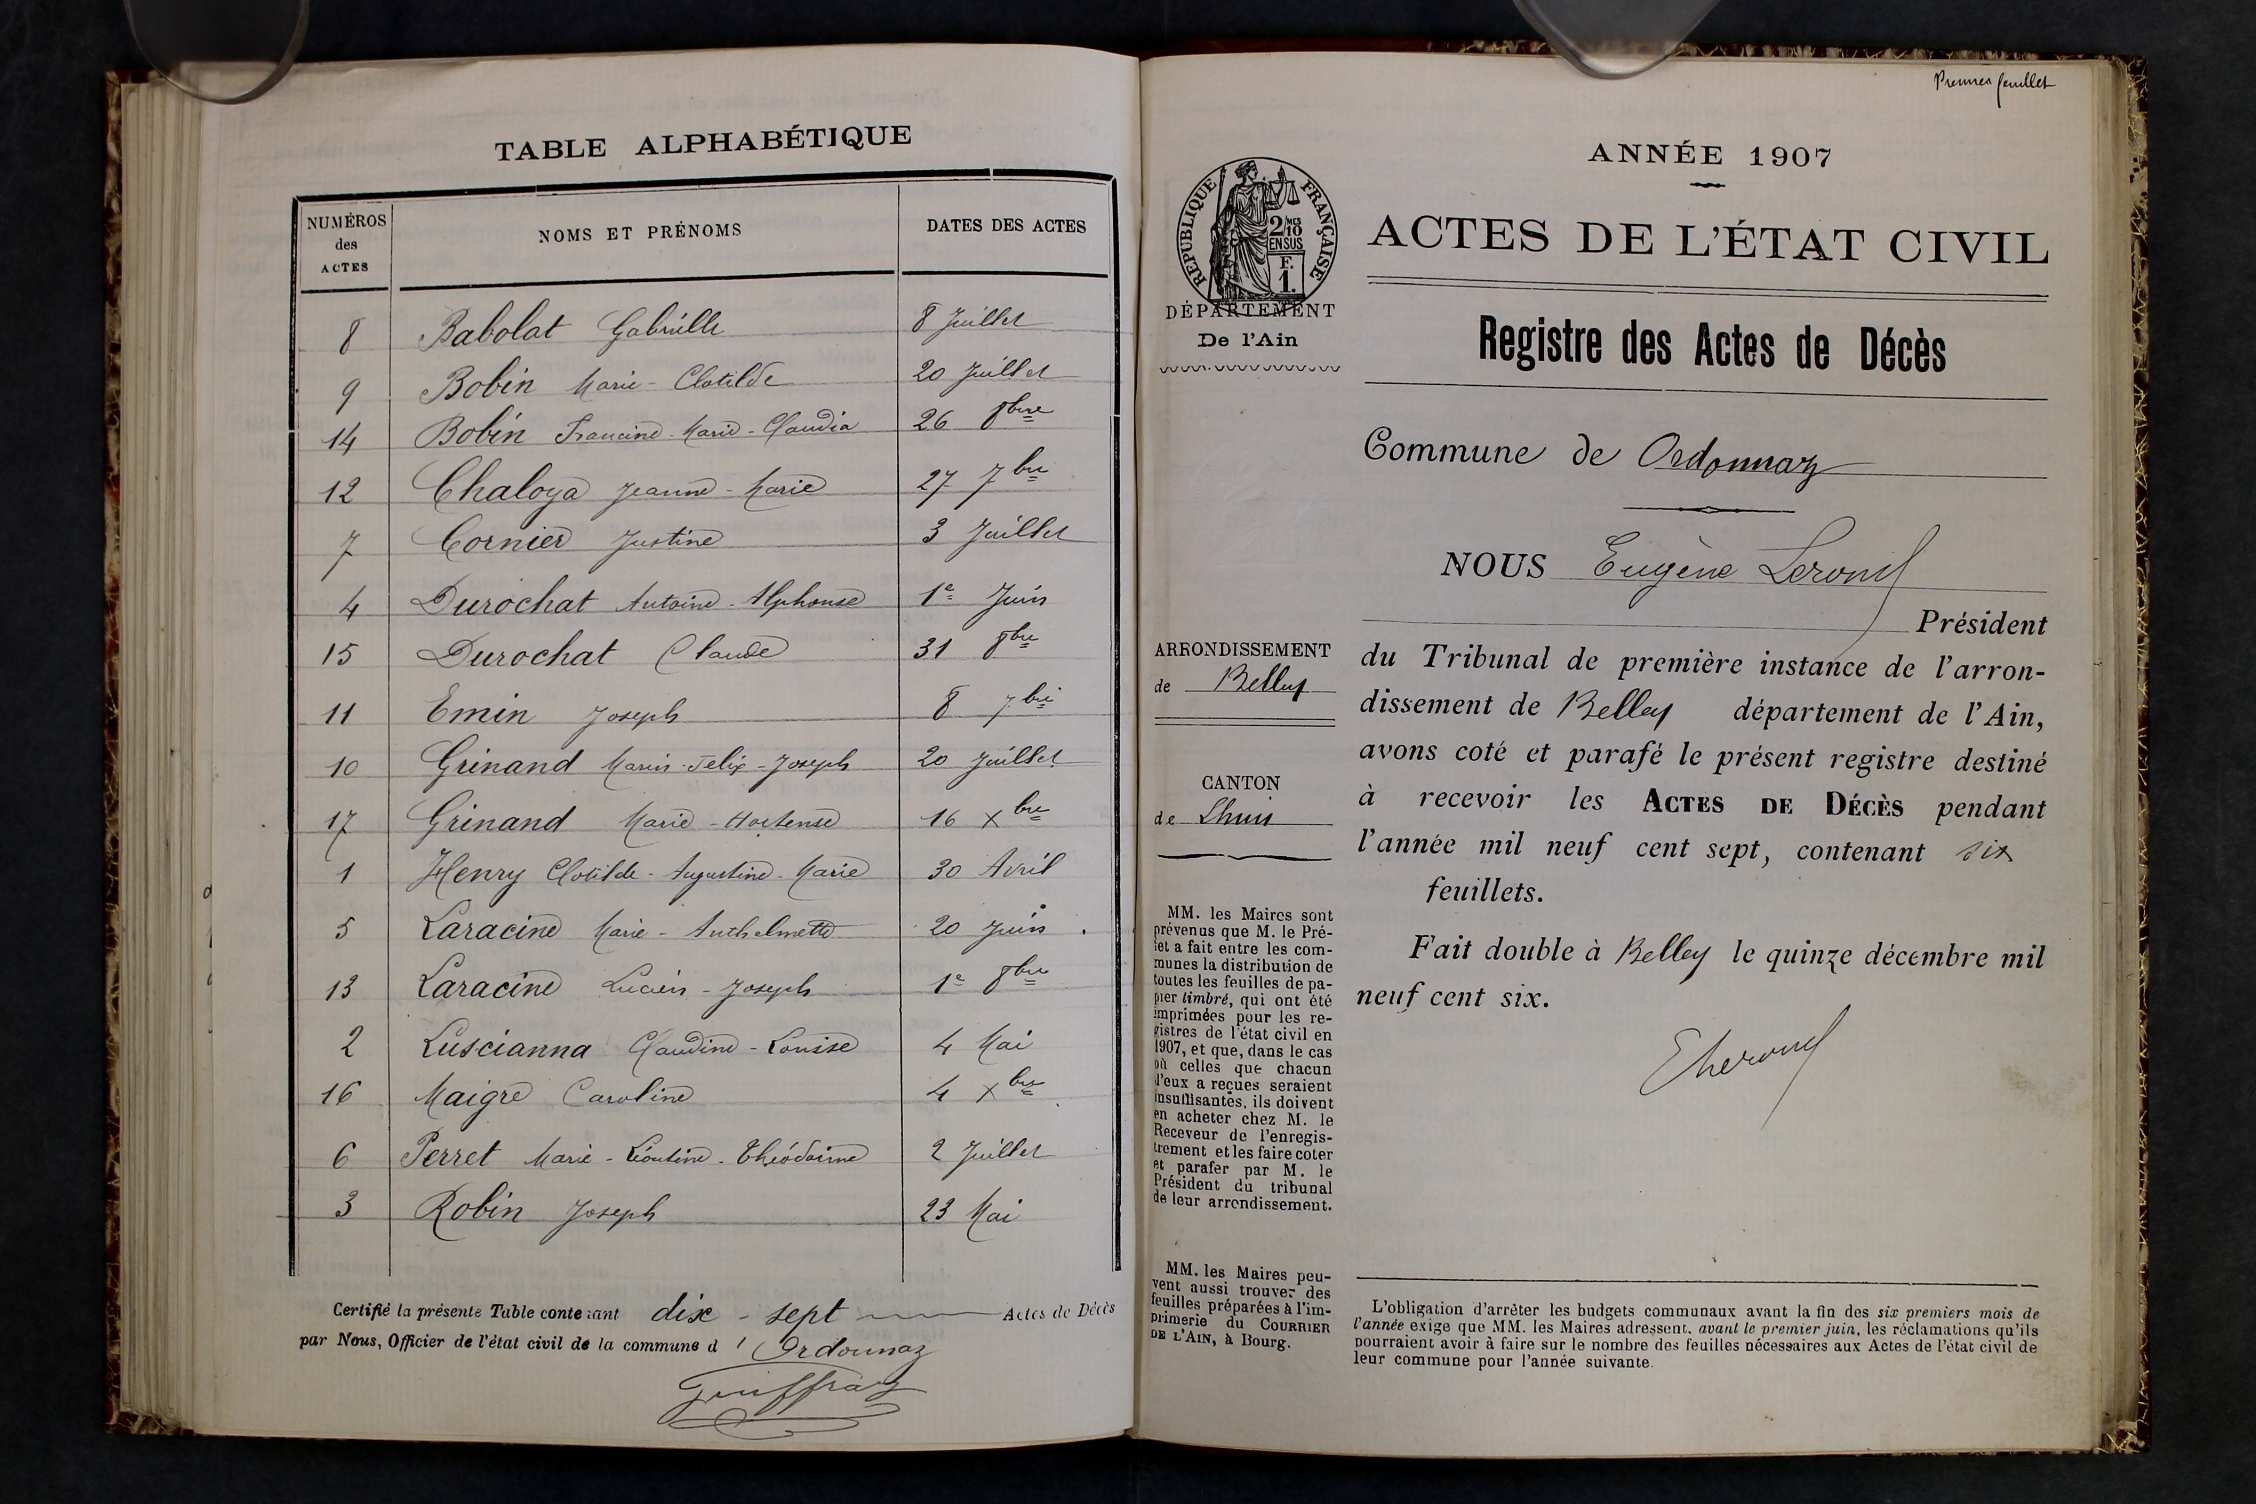 TABLE ALPHABÉTIQUE
NUMÉROS des ACTES NOMS ET PRÉNOMS DATES DES ACTES
8 Babolat Gabrielle 8 Juillet
9 Bobin Marie-Clotilde 20 Juillet
14 Bobin Francine-Marie-Claudia 26 8bre
12 Chaloya Jeanne-Marie 27 7bre
7 Cornier Justine 3 Juillet
4 Durochat Antoine-Alphonse 1e Juin
15 Durochat Claude 31 8bre
11 Emin Joseph 8 7bre
10 Grinand Marius-Félix-Joseph 20 Juillet
17 Grinand Marie-Hortense 16 Xbre
1 Henry Clotilde-Augustine-Marie 30 Avril
5 Laracine Marie-Anthelmette 20 Juin
13 Laracine Lucien-Joseph 1e 8bre
2 Luscianna Claudine-Louise 4 Mai
16 Maigre Caroline 4 Xbre
6 Perret Marie-Léontine 2 Juillet
3 Robin Joseph 23 Mai
Certifié la présente Table contenant dix-sept Actes de Décès
par Nous, Officier de l'état civil de la commune d'Ordonnaz
Premier feuillet
ANNÉE 1907
RÉPUBLIQUE FRANÇAISE
2/10 MES
EN SUS
F.
1.
DÉPARTEMENT
De l'Ain
ACTES DE L'ÉTAT CIVIL
Registre des Actes de Décès
Commune de Ordonnaz
NOUS Eugène
Président
du Tribunal de première instance de l'arron-
dissement de Belley département de l'Ain,
avons coté et parafé le présent registre destiné
à recevoir les ACTES DE DÉCÈS pendant
l'année mil neuf cent sept, contenant six
feuillets.
Fait double à Belley le quinze décembre mil
neuf cent six.
ARRONDISSEMENT
de Belley
CANTON
de Lhuis
MM. les Maires sont
prévenus que M. le Pré-
fet a fait entre les com-
munes la distribution de
toutes les feuilles de pa-
pier timbré, qui ont été
imprimées pour les re-
gistres de l'état civil en
1907, et que, dans le cas
où celles que chacun
d'eux a reçues seraient
insuffisantes, ils doivent
en acheter chez M. le
Receveur de l'enregis-
trement et les faire coter
et parafer par M. le
Président du tribunal
de leur arrondissement.
MM. les Maires peu-
vent aussi trouver des
feuilles préparées à l'im-
primerie du COURRIER
DE L'AIN, à Bourg.
L'obligation d'arrêter les budgets communaux avant la fin des six premiers mois de
l'année exige que MM. les Maires adressent, avant le premier juin, les réclamations qu'ils
pourraient avoir à faire sur le nombre des feuilles nécessaires aux Actes de l'état civil de
leur commune pour l'année suivante.